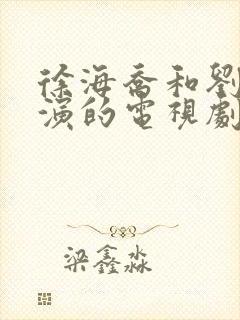 徐海喬和劉
演的電視劇
梁鑫淼